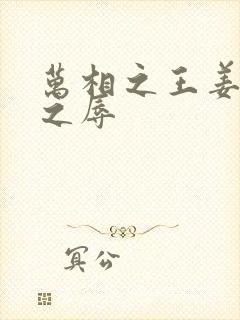 萬相之王姜
之辱
冥公